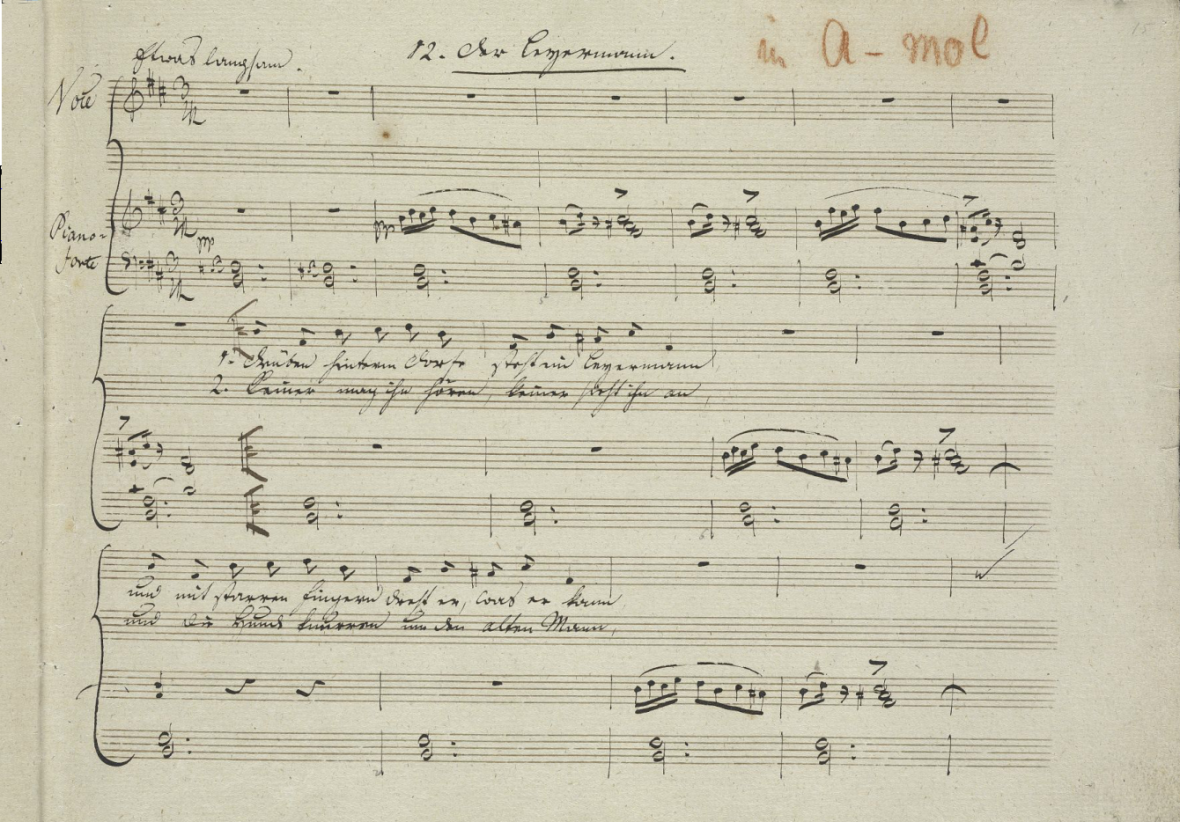 Etwas langsam. 12. Der Leyermann. in A-mol
15
Voce
pp
pp
Piano-
forte
1. Drüben hinterm Dorfe steht ein Leyermann
2. Keiner mag ihn hören, keiner sieht ihn an,
und mit starren Fingern dreht er, was er kann
und die Hunde knurren um den alten Mann,